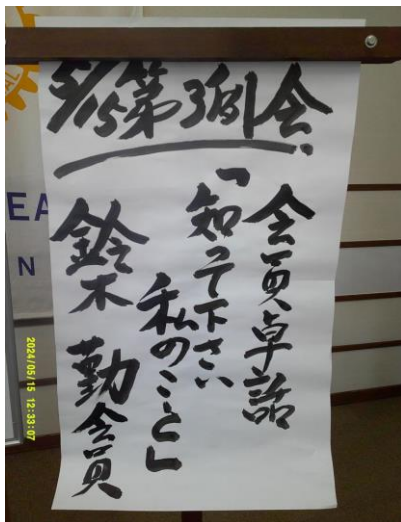 5/15第3例会
会員卓話
「知って下さい
私のこと」
鈴木 勤会員
EA
N
AL
2024/05/15 12:33:07